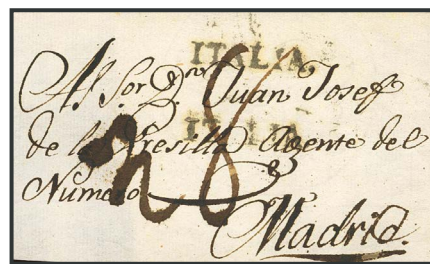 ITALIA
Al Sor. Dn. Juan Josef
ITALIA
de la Presilla Agente del
Numero
28
Madrid.